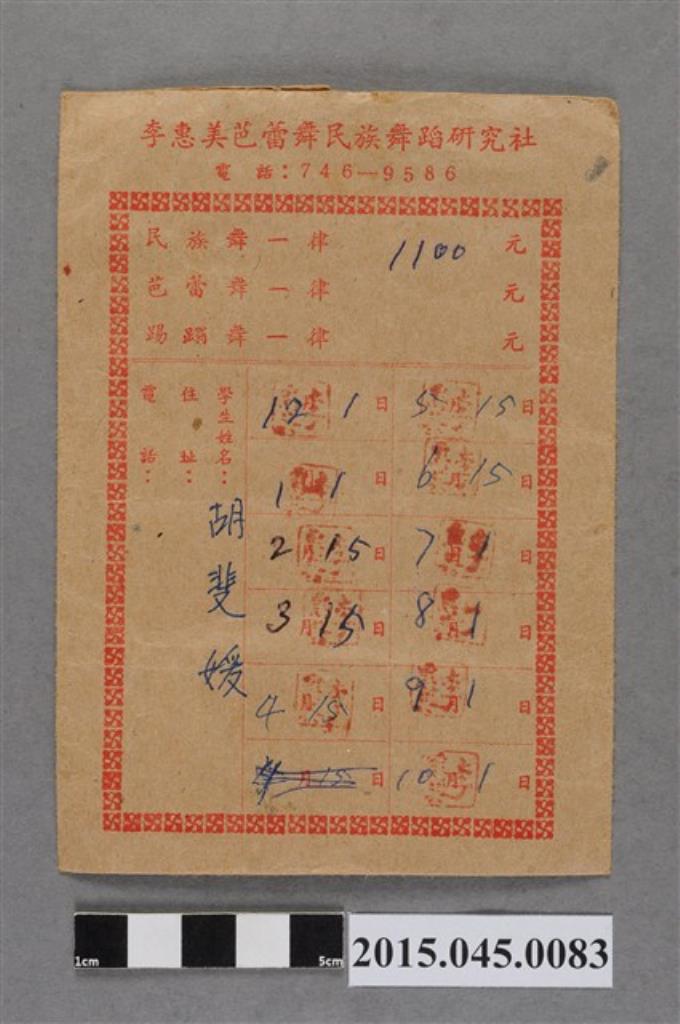 李惠美芭蕾舞民族舞蹈研究社
電話：746—9586
民族舞一律 1100 元
芭蕾舞一律 元
踢蹋舞一律 元
學生姓名：胡斐媛
住址：
電話：
12 1日
1 1日
2月15日
3月15日
4月15日
月15日
5月15日
6月15日
7月1日
8月1日
9月1日
10月1日
1cm 5cm
2015.045.0083